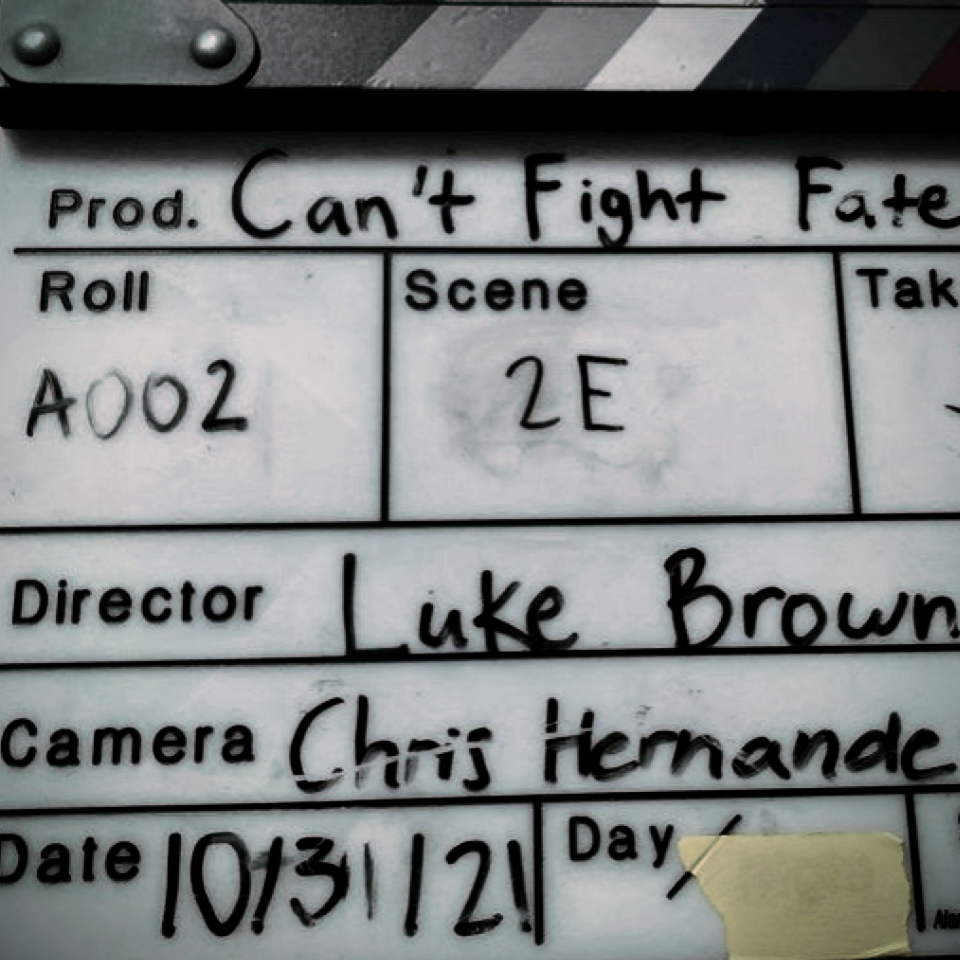 Prod. Can't Fight Fate
Roll Scene Tak
A002 2E
Director Luke Brown
Camera Chris Hernande
Date 10/31/21 Day